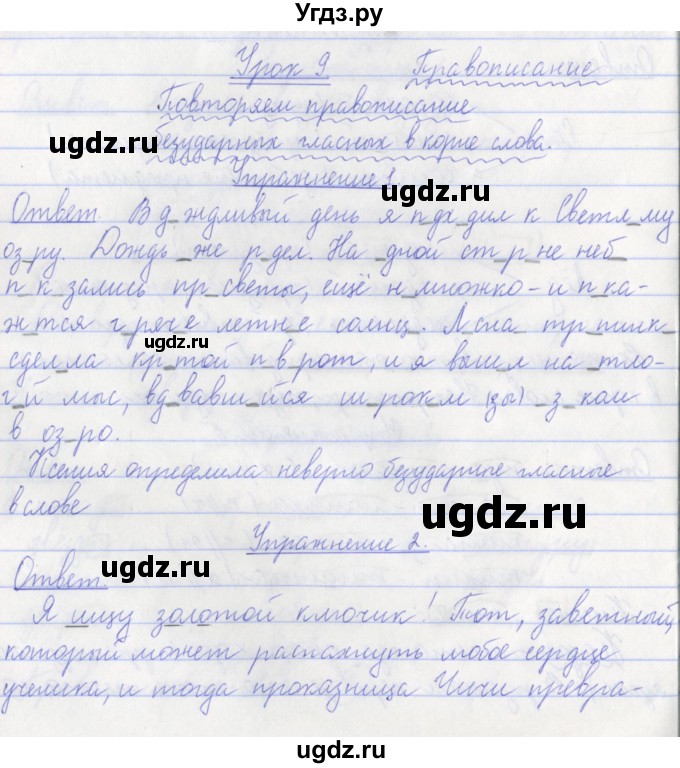 Угдз.ру
Урок 9 Правописание
Повторяем правописание
безударных гласных в корне слова.
Упражнение 1.
Ответ. В д_ждливый день я п_дх_дил к Светл_му
оз_ру. Дождь _же р_дел. На _дной ст_р_не неб_
п_к_зались пр_светы, ещё н_множко - и п_ка-
ж_тся г_ряч_е летн_е солнц_. Лсна тр_пинк_
сдел_ла кр_той п_в_рот, и я выш_л на _тло-
г_й мыс, вд_вавш_йся ш_рок_м (зы) _з_ком
в оз_ро.
Ксения определила неверно безударные гласные
в слове
Упражнение 2.
Ответ.
Я ищу золотой ключик! Тот, заветный,
который может распахнуть любое сердце
ученика, и тогда проказница Чичи превра-
ugdz.ru
ugdz.ru
ugdz.ru
ugdz.ru
ugdz.ru
ugdz.ru